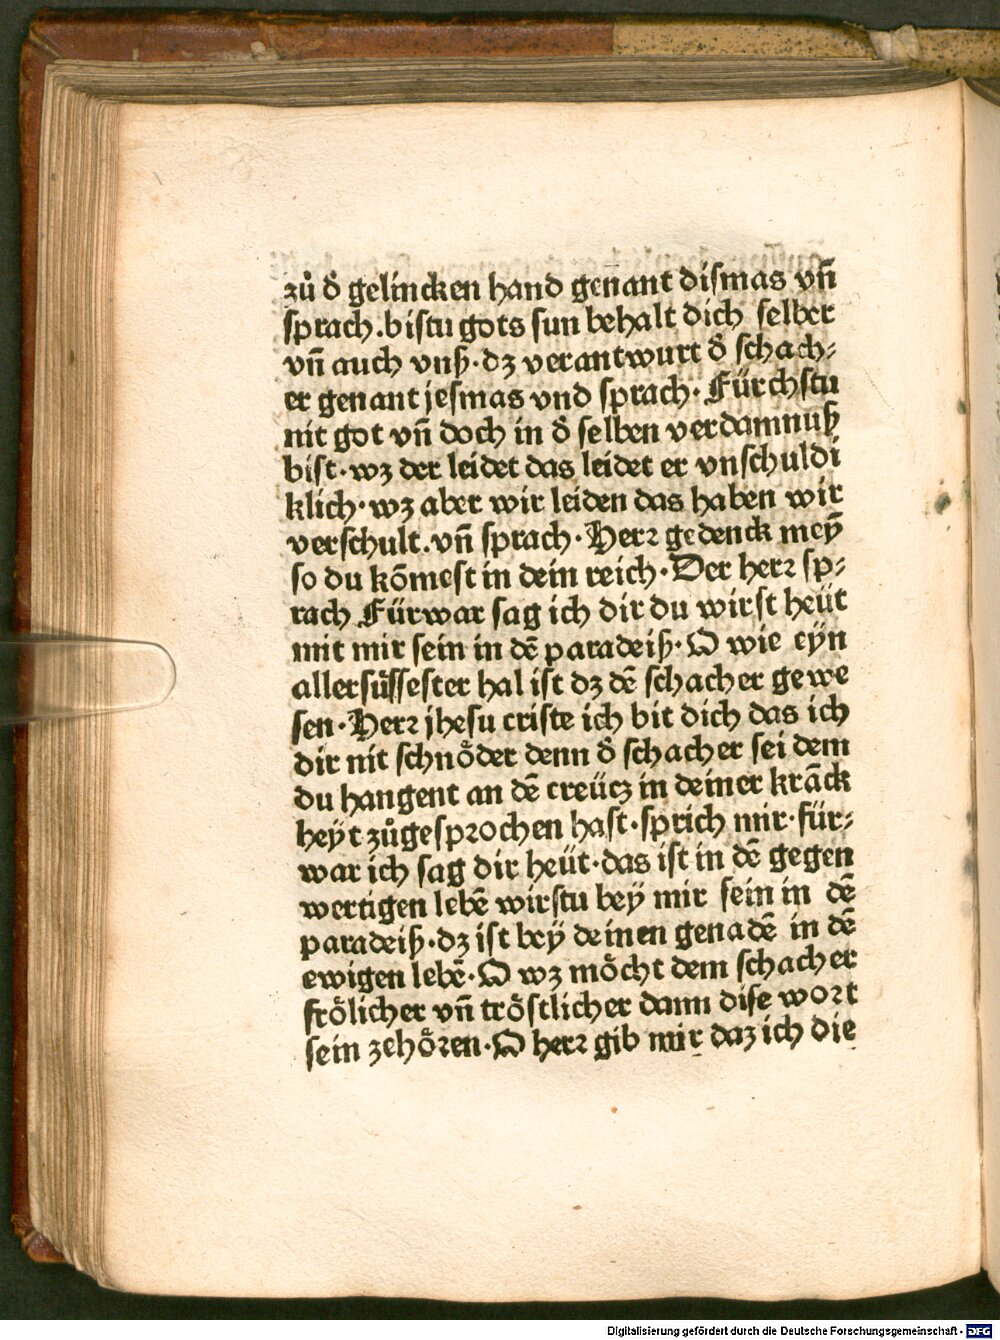 zů d᷑ gelincken hand genãnt dismas vñ
sprach.bistu gots sun behalt dich selber
vñ auch vnß·dz verantwurt d᷑ schach⸗
er genant jesmas vnd sprach·Fürchstu
nit got vñ doch in d᷑ selben verdamnuß
bist·wz der leidet das leidet er vnschuldi
klich·wz aber wir leiden das haben wir
verschult.vñ sprach·Herꝛ gedenck meȳ
so du kōmest in dein reich·Der herꝛ sp⸗
rach Fürwar sag ich dir du wirst heüt
mit mir sein in dē paradeiß·O wie eÿn
allersüssester hal ist dz dē schacher gewe
sen·Herꝛ jhesu criste ich bit dich das ich
dir nit schnöder denn d᷑ schacher sei dem
du hangent an dē creücz in deiner krāck
heÿt zůgespꝛochen hast·sprich mir·für⸗
war ich sag dir heüt·das ist in dē gegen
wertigen lebē wirstu beÿ mir sein in dē
paradeiß·dz ist beÿ deinen genadē in dē
ewigen lebē·O wz möcht dem schacher
frölicher vñ tröstlicher dann dise woꝛt
sein zehöꝛen·O herꝛ gib mir daz ich die
Digitalisierung gefördert durch die Deutsche Forschungsgemeinschaft - DFG